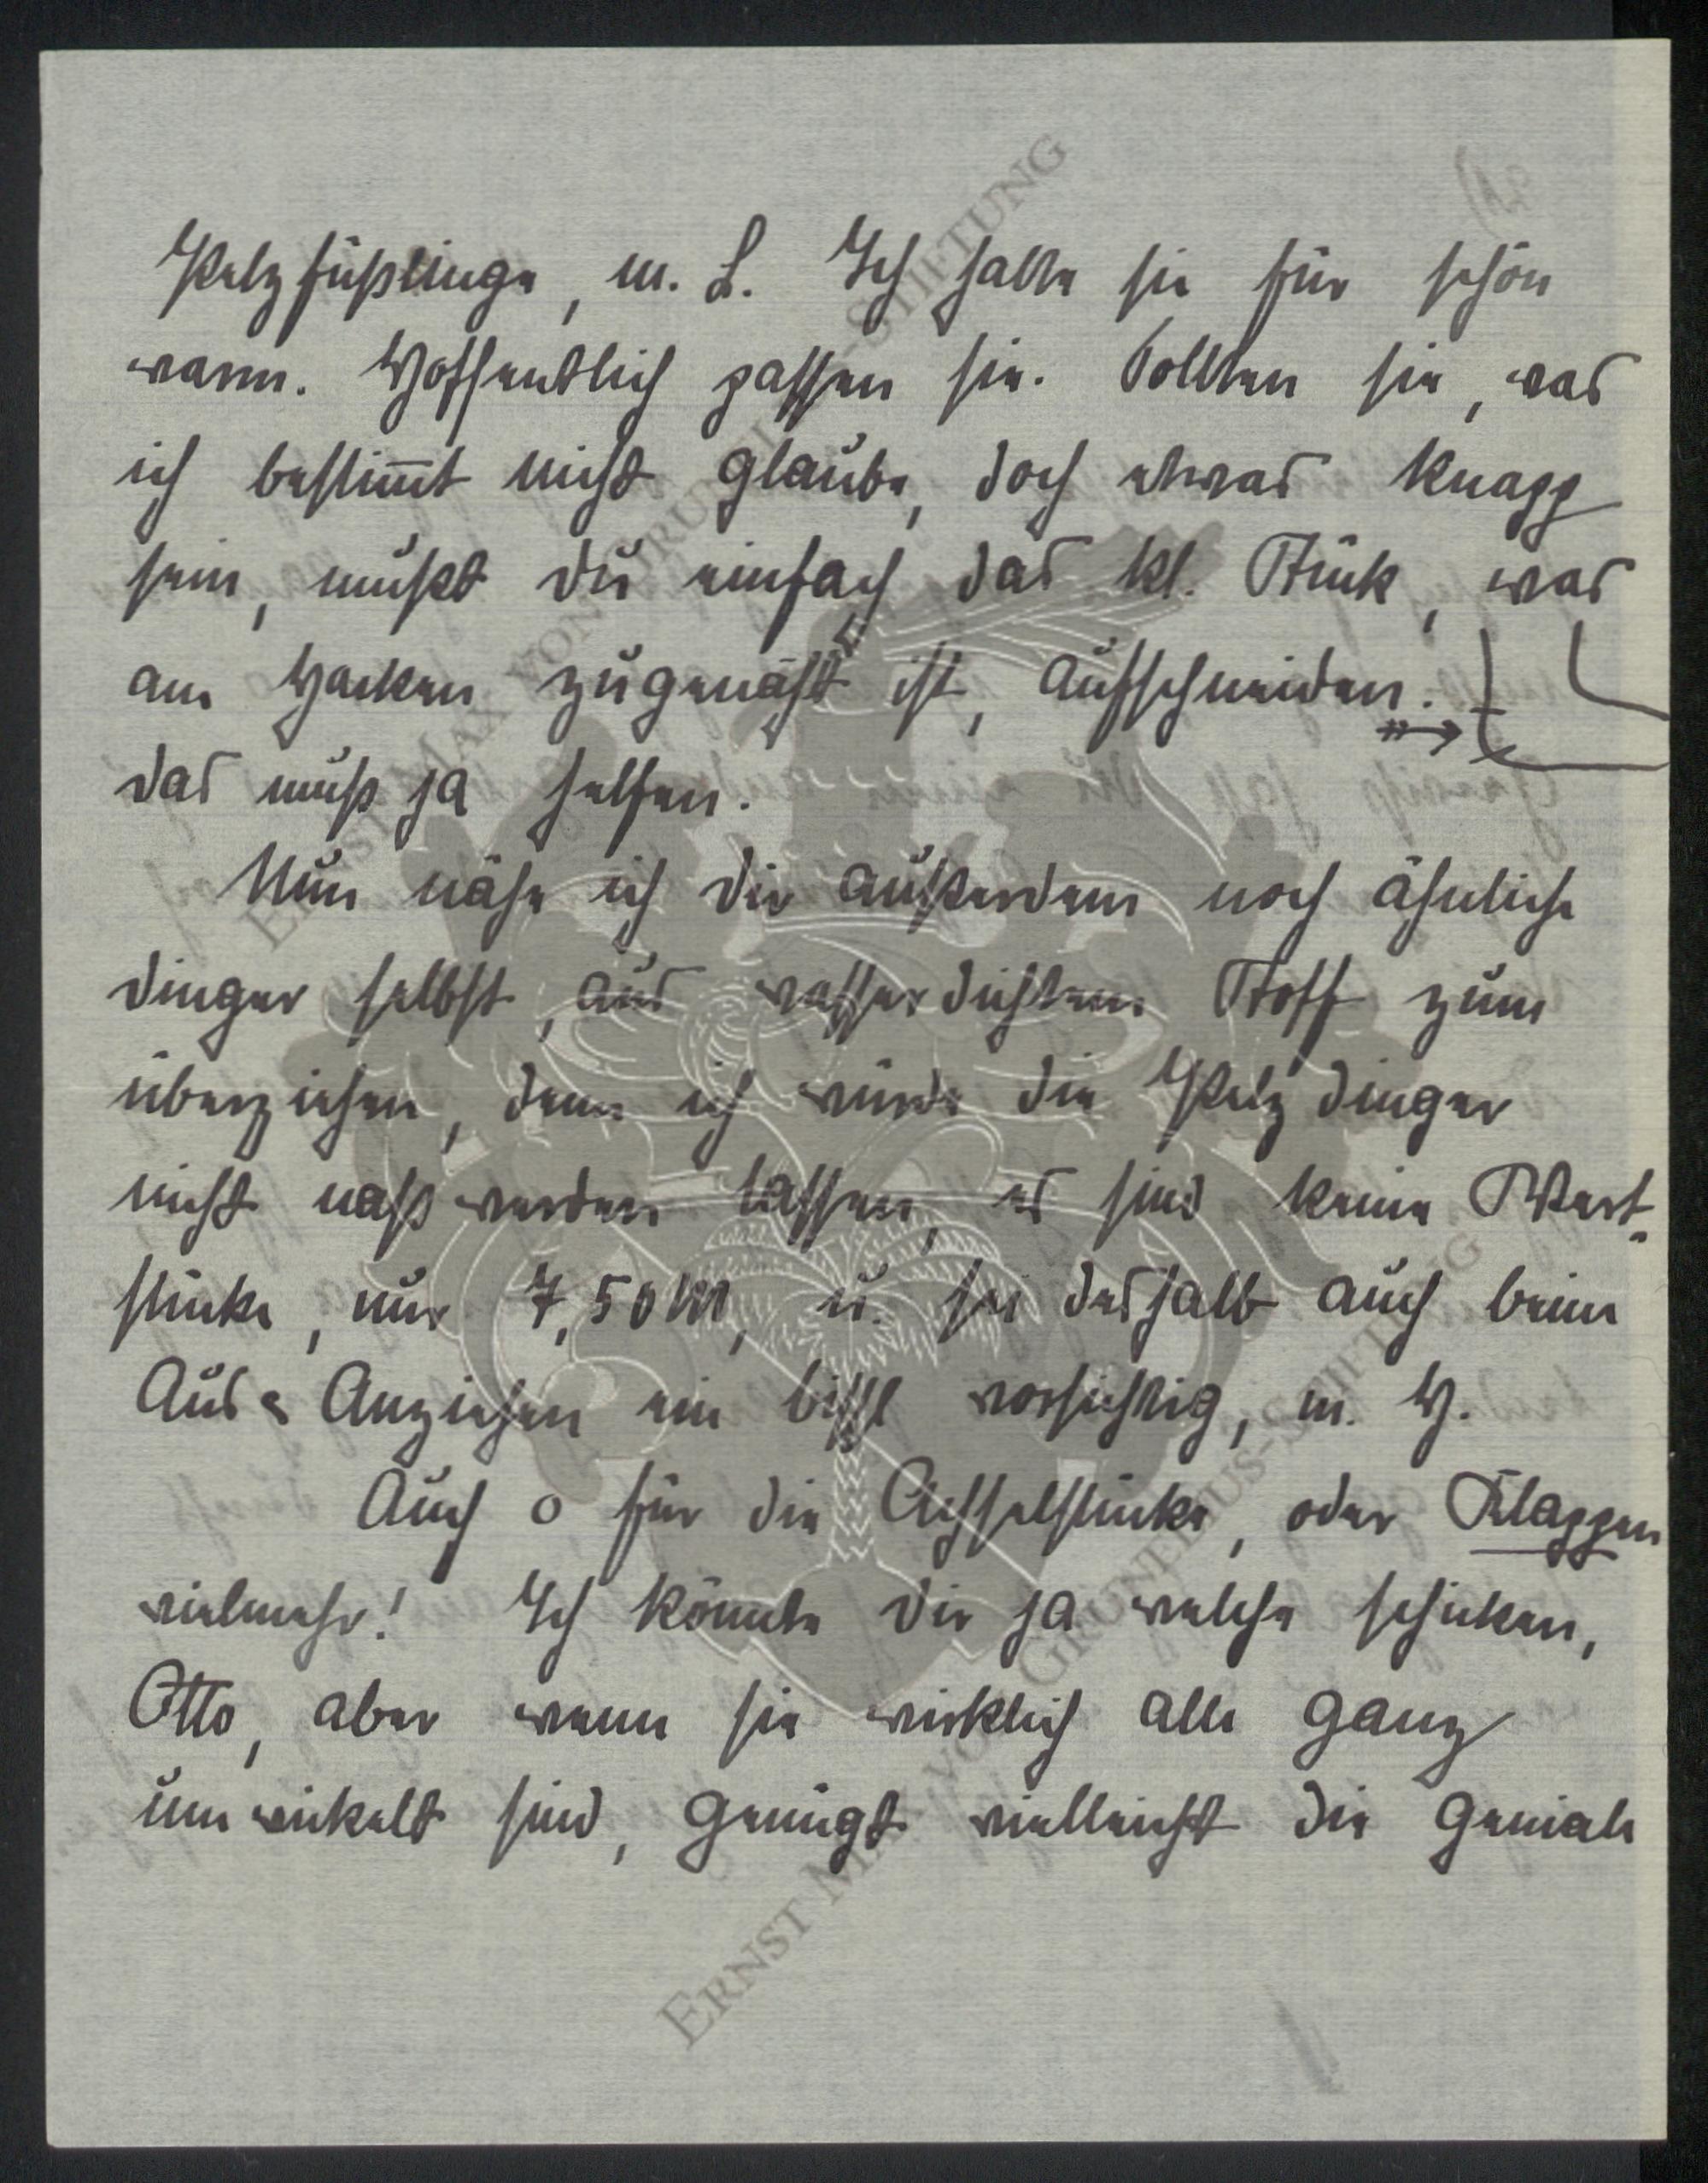 Pelzfüßlinge, m. L. Ich halte sie für schön
warm. Hoffentlich passen sie. Sollten sie, was
ich bestim̅t nicht glaube, doch etwas knapp
sein, mußt du einfach das kl. Stück, was
am Hacken zugenäht ist, aufschneiden.
das muß ja helfen.
Nun nähe ich dir außerdem noch ähnliche
dinger selbst, aus wasserdichtem Stoff zum
überziehen, denn ich würde die Pelzdinger
nicht naß werden lassen, es sind keine Wert-
stücke, nur 7,50 M, u. sei deshalb auch beim
Aus- & Anziehen ein bissl vorsichtig, m. H.
Auch o für die Achselstücke, oder Klappen
vielmehr! Ich könnte dir ja welche schicken,
Otto, aber wenn sie wirklich alle ganz
umwickelt sind, genügt vielleicht die geniale
ERNST MAX VON GRUNELIUS-STIFTUNG
ERNST MAX VON GRUNELIUS-STIFTUNG